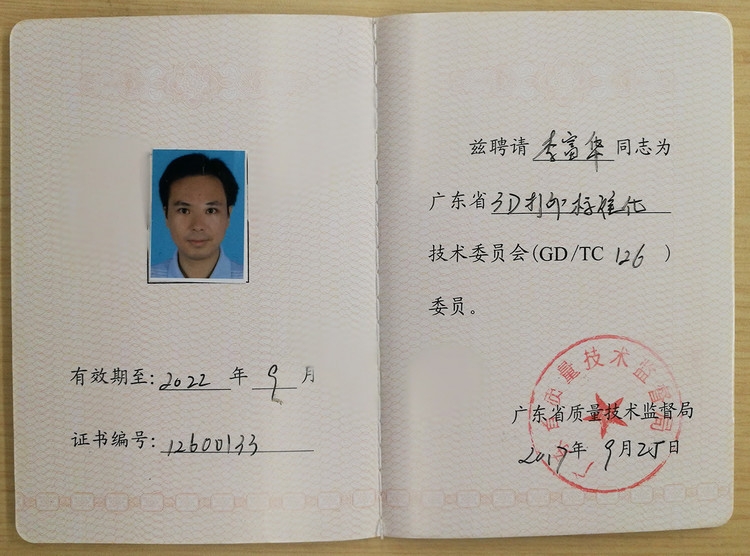 有效期至:2022年9月
证书编号:12600133
兹聘请 李富华 同志为
广东省3D打印标准化
技术委员会(GD/TC 126 )
委员。
广东省质量技术监督局
广东省质量技术监督局
2017年9月25日